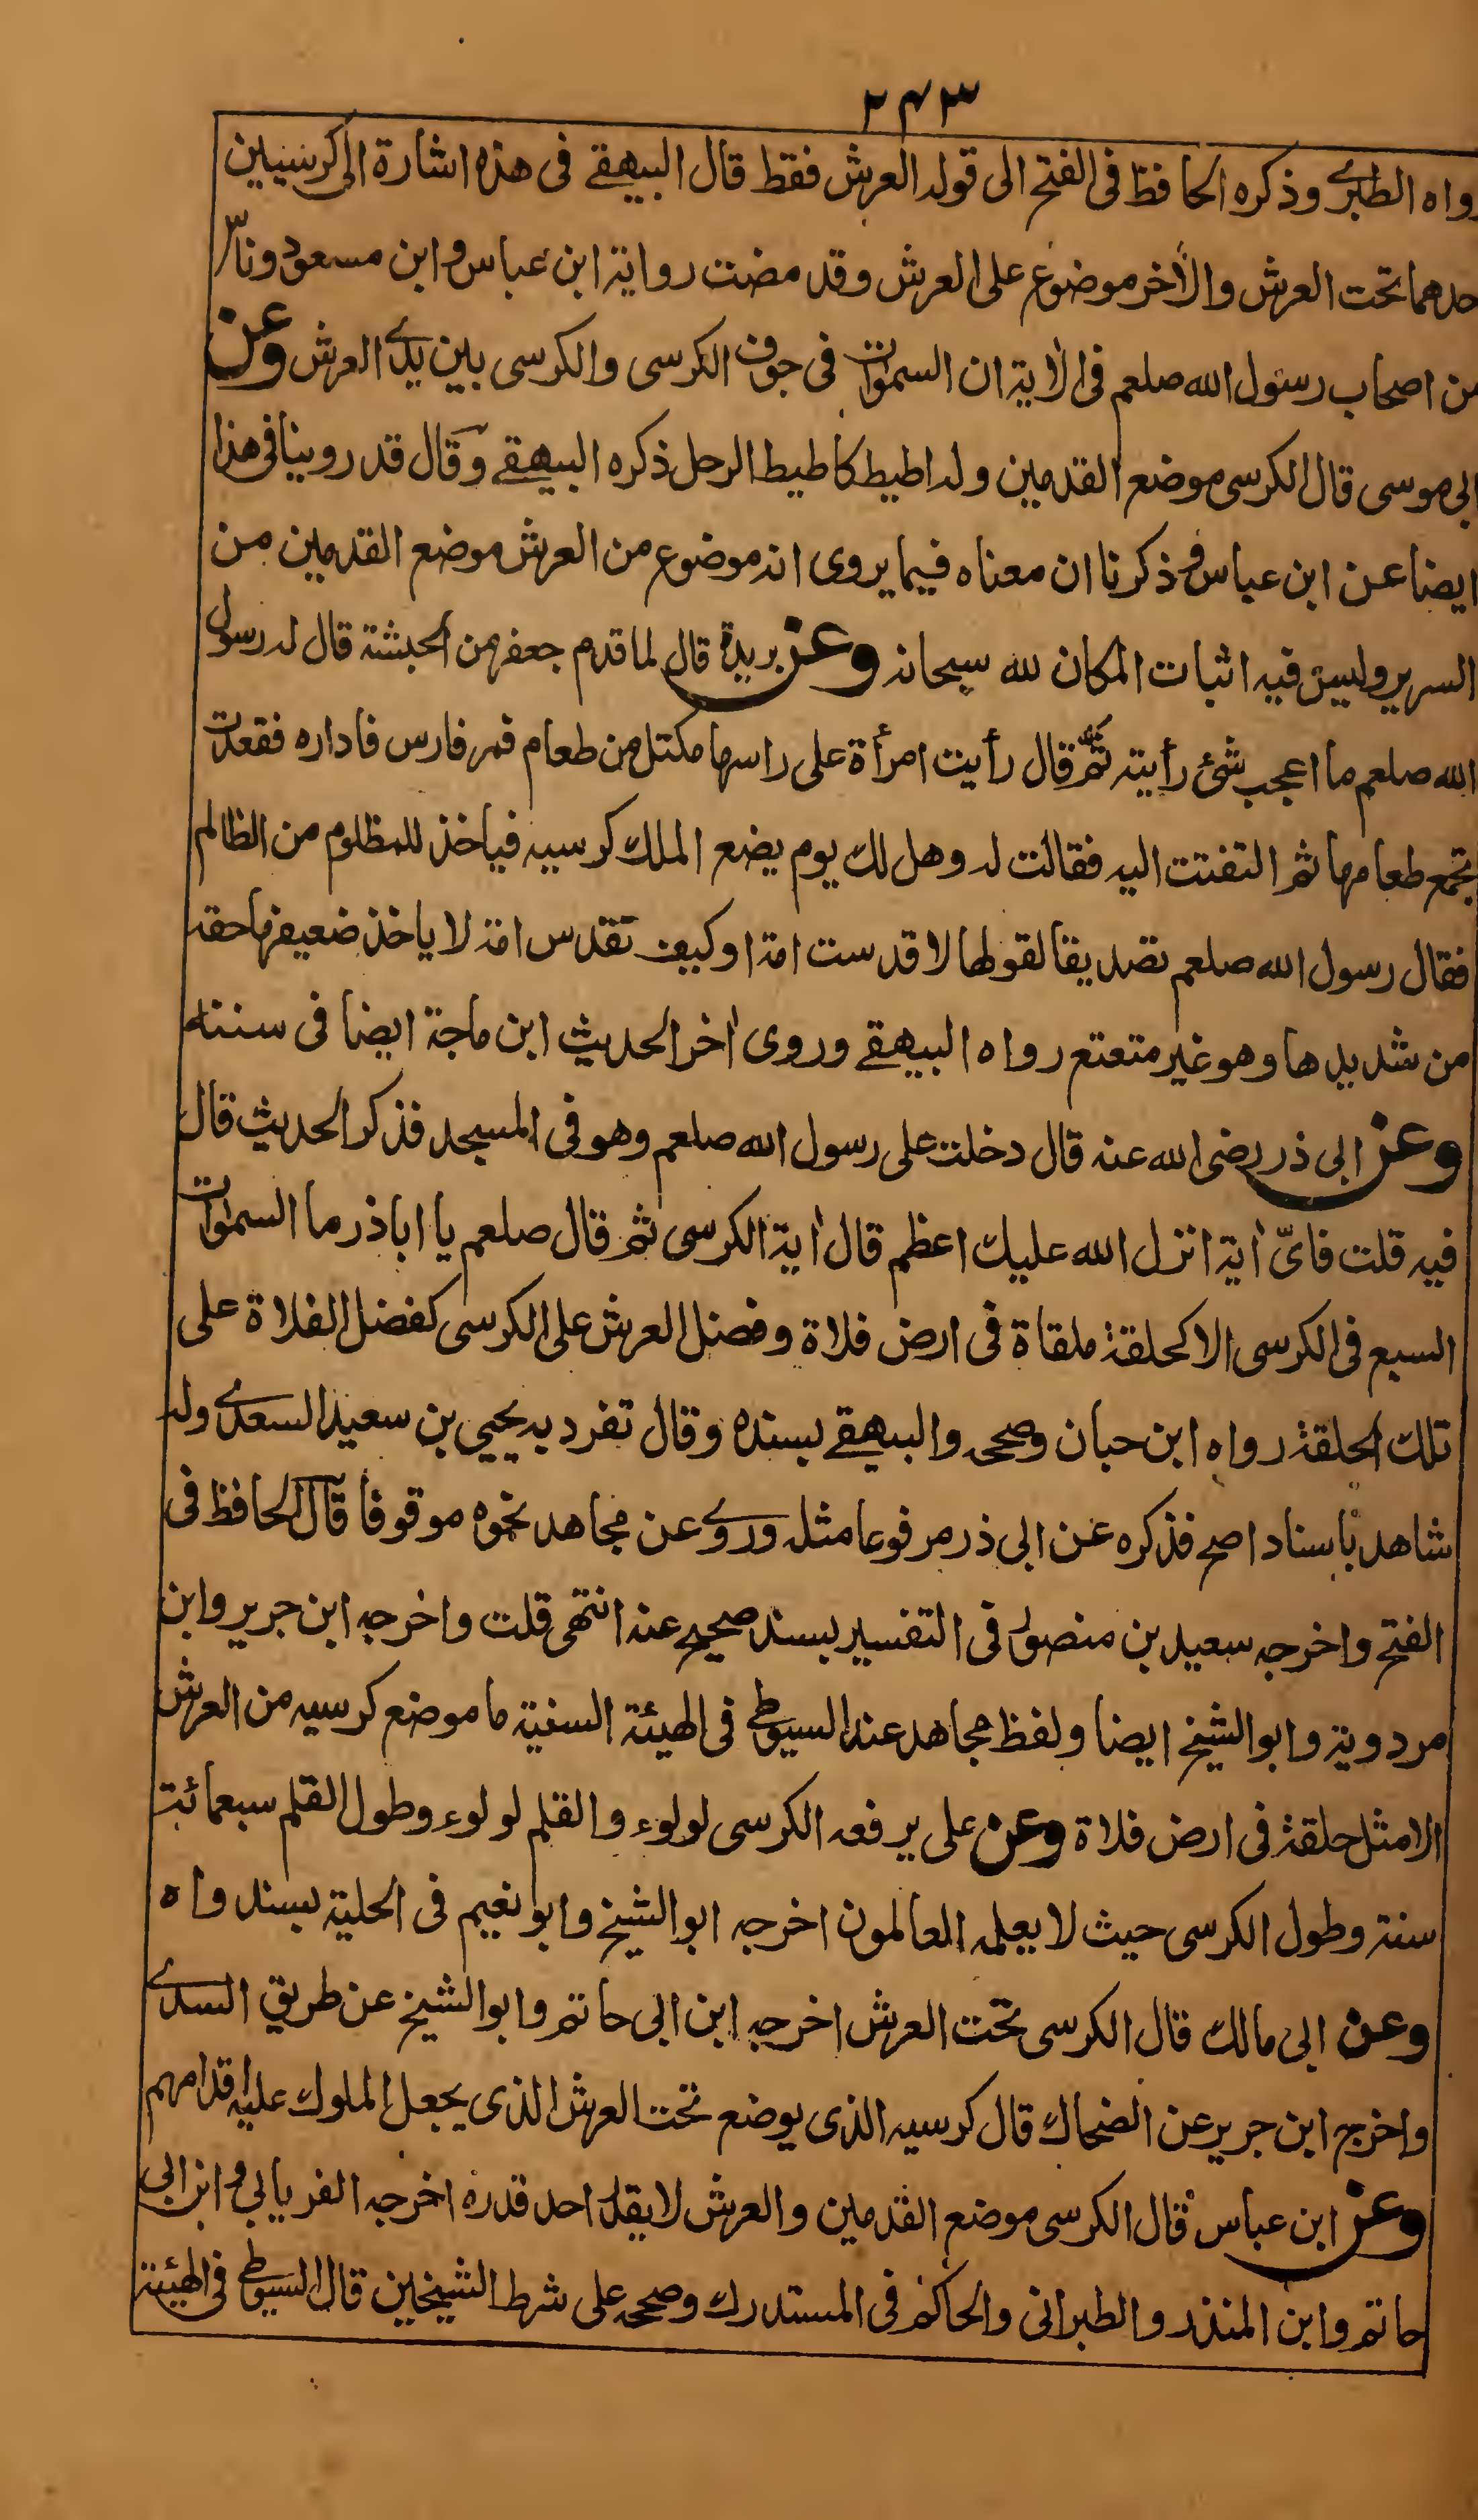 ٢٤٣
رواه الطبرى وذكره الحافظ فى الفتح الى قوله العرش فقط قال البيهقے فى هذه اشارة الى كرسيين
حدهما تحت العرش والأخر موضوع على العرش وقد مضت رواية ابن عباس وابن مسعود وناس
من اصحاب رسول الله صلعم فى الاٰية ان السمٰوات فى جوف الكرسى والكرسى بين يدے العرش وعن
ابى موسى قال الكرسى موضع القدمين وله اطيط كاطيط الرحل ذكره البيهقے وقال قد روينا فى هذا
ايضا عن ابن عباس وذكرنا ان معناه فيما يروى انه موضوع من العرش موضع القدمين من
السرير وليس فيه اثبات المكان لله سبحانه وعن بريدة قال لما قدم جعفر من الحبشة قال له رسول
الله صلعم ما اعجب شئ رأيته ثمه قال رأيت امرأة على راسها مكتل من طعام فمر فارس فاداره فقعدت
تجمع طعامها ثم التفتت اليه فقالت له وهل لك يوم يضع الملك كرسيه فياخذ للمظلوم من الظالم
فقال رسول الله صلعم تصديقا لقولها لا قدست امة او كيف تقدس امة لا ياخذ ضعيفها حقه
من شديدها وهو غير متعتع رواه البيهقے وروى اٰخر الحديث ابن ماجة ايضا فى سننه
وعن ابى ذر رضى الله عنه قال دخلت على رسول الله صلعم وهو فى المسجد فذكر الحديث قال
فيه قلت فاىّ اٰية انزل الله عليك اعظم قال اٰية الكرسى ثم قال صلعم يا اباذر ما السمٰوات
السبع فى الكرسى الا كحلقة ملقاة فى ارض فلاة وفضل العرش على الكرسى كفضل الفلاة على
تلك الحلقة رواه ابن حبان وصححه والبيهقے بسنده وقال تفرد به يحيى بن سعيد السعدے وله
شاهد باسناد اصح فذكره عن ابى ذر مرفوعا مثله وروے عن مجاهد نحوه موقوفا قال الحافظ فى
الفتح واخرجه سعيد بن منصور فى التفسير بسند صحيح عنه انتهى قلت واخرجه ابن جرير وابن
مردوية وابو الشيخ ايضا ولفظ مجاهد عند السيوطے فى الهيئة السنية ما موضع كرسيه من العرش
الا مثل حلقة فى ارض فلاة وعن على يرفعه الكرسى لولوء والقلم لولوء وطول القلم سبعمائة
سنة وطول الكرسى حيث لا يعلمه العالمون اخرجه ابو الشيخ وابو نعيم فى الحلية بسند واه
وعن ابى مالك قال الكرسى تحت العرش اخرجه ابن ابى حاتم وابو الشيخ عن طريق السدے
واخرج ابن جرير عن الضحاك قال كرسيه الذى يوضع تحت العرش الذى يجعل الملوك عليه اقدامهم
وعن ابن عباس قال الكرسى موضع القدمين والعرش لا يقدر احد قدره اخرجه الفريابى وابن ابى
حاتم وابن المنذر والطبرانى والحاكم فى المستدرك وصححه على شرط الشيخين قال السيوطے فى الهيئة